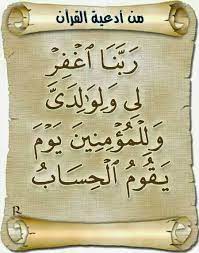 من أدعية القرآن
رَبَّنَا ٱغْفِرْ
لِى وَلِوَٰلِدَىَّ
وَلِلْمُؤْمِنِينَ يَوْمَ
يَقُومُ ٱلْحِسَابُ